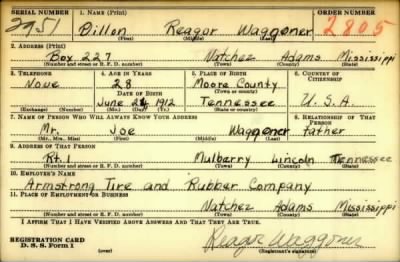 SERIAL NUMBER 1. NAME (Print) ORDER NUMBER
2951 Dillon Reagor Waggoner 2805
(First) (Middle) (Last)
2. ADDRESS (Print)
Box 227 Natchez Adams Mississippi
(Number and street or R. F. D. number) (Town) (County) (State)
3. TELEPHONE 4. AGE IN YEARS 5. PLACE OF BIRTH 6. COUNTRY OF CITIZENSHIP
None 28 Moore County
DATE OF BIRTH (Town or county)
June 24 1912 Tennessee U.S.A.
(Exchange) (Number) (Mo.) (Day) (Yr.) (State or country)
7. NAME OF PERSON WHO WILL ALWAYS KNOW YOUR ADDRESS 8. RELATIONSHIP OF THAT PERSON
Mr. Joe Waggoner father
(Mr., Mrs., Miss) (First) (Middle) (Last)
9. ADDRESS OF THAT PERSON
Rt. 1 Mulberry Lincoln Tennessee
(Number and street or R. F. D. number) (Town) (County) (State)
10. EMPLOYER'S NAME
Armstrong Tire and Rubber Company
11. PLACE OF EMPLOYMENT OR BUSINESS
Natchez Adams Mississippi
(Number and street or R. F. D. number) (Town) (County) (State)
I AFFIRM THAT I HAVE VERIFIED ABOVE ANSWERS AND THAT THEY ARE TRUE.
REGISTRATION CARD
D. S. S. Form 1
Reagor Waggoner
(Registrant's signature)